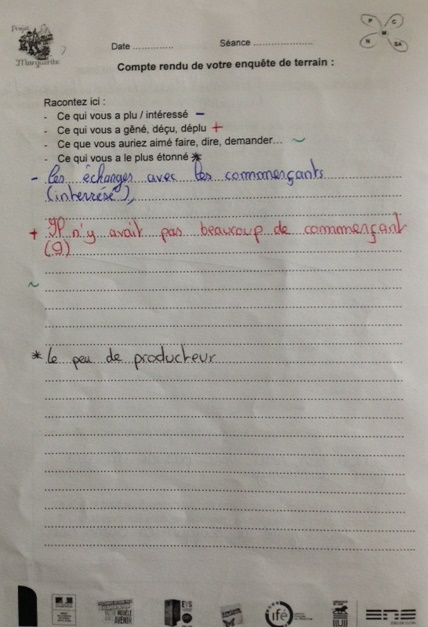 Projet
Marguerite
P C
M
N SA
Date .............. Séance ....................
Compte rendu de votre enquête de terrain :
Racontez ici :
- Ce qui vous a plu / intéressé −
- Ce qui vous a gêné, déçu, déplu +
- Ce que vous auriez aimé faire, dire, demander... ~
- Ce qui vous a le plus étonné *
- les échanges avec les commerçants
(interrésé),
+ Il n'y avait pas beaucoup de commerçant
(9)
~
* le peu de producteur
ifé
ENS